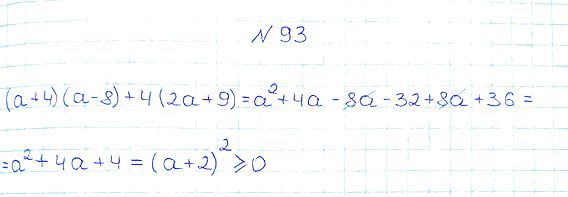 N 93
(a+4)(a-8)+4(2a+9)=a²+4a-8a-32+8a+36=
=a²+4a+4=(a+2)²⩾0